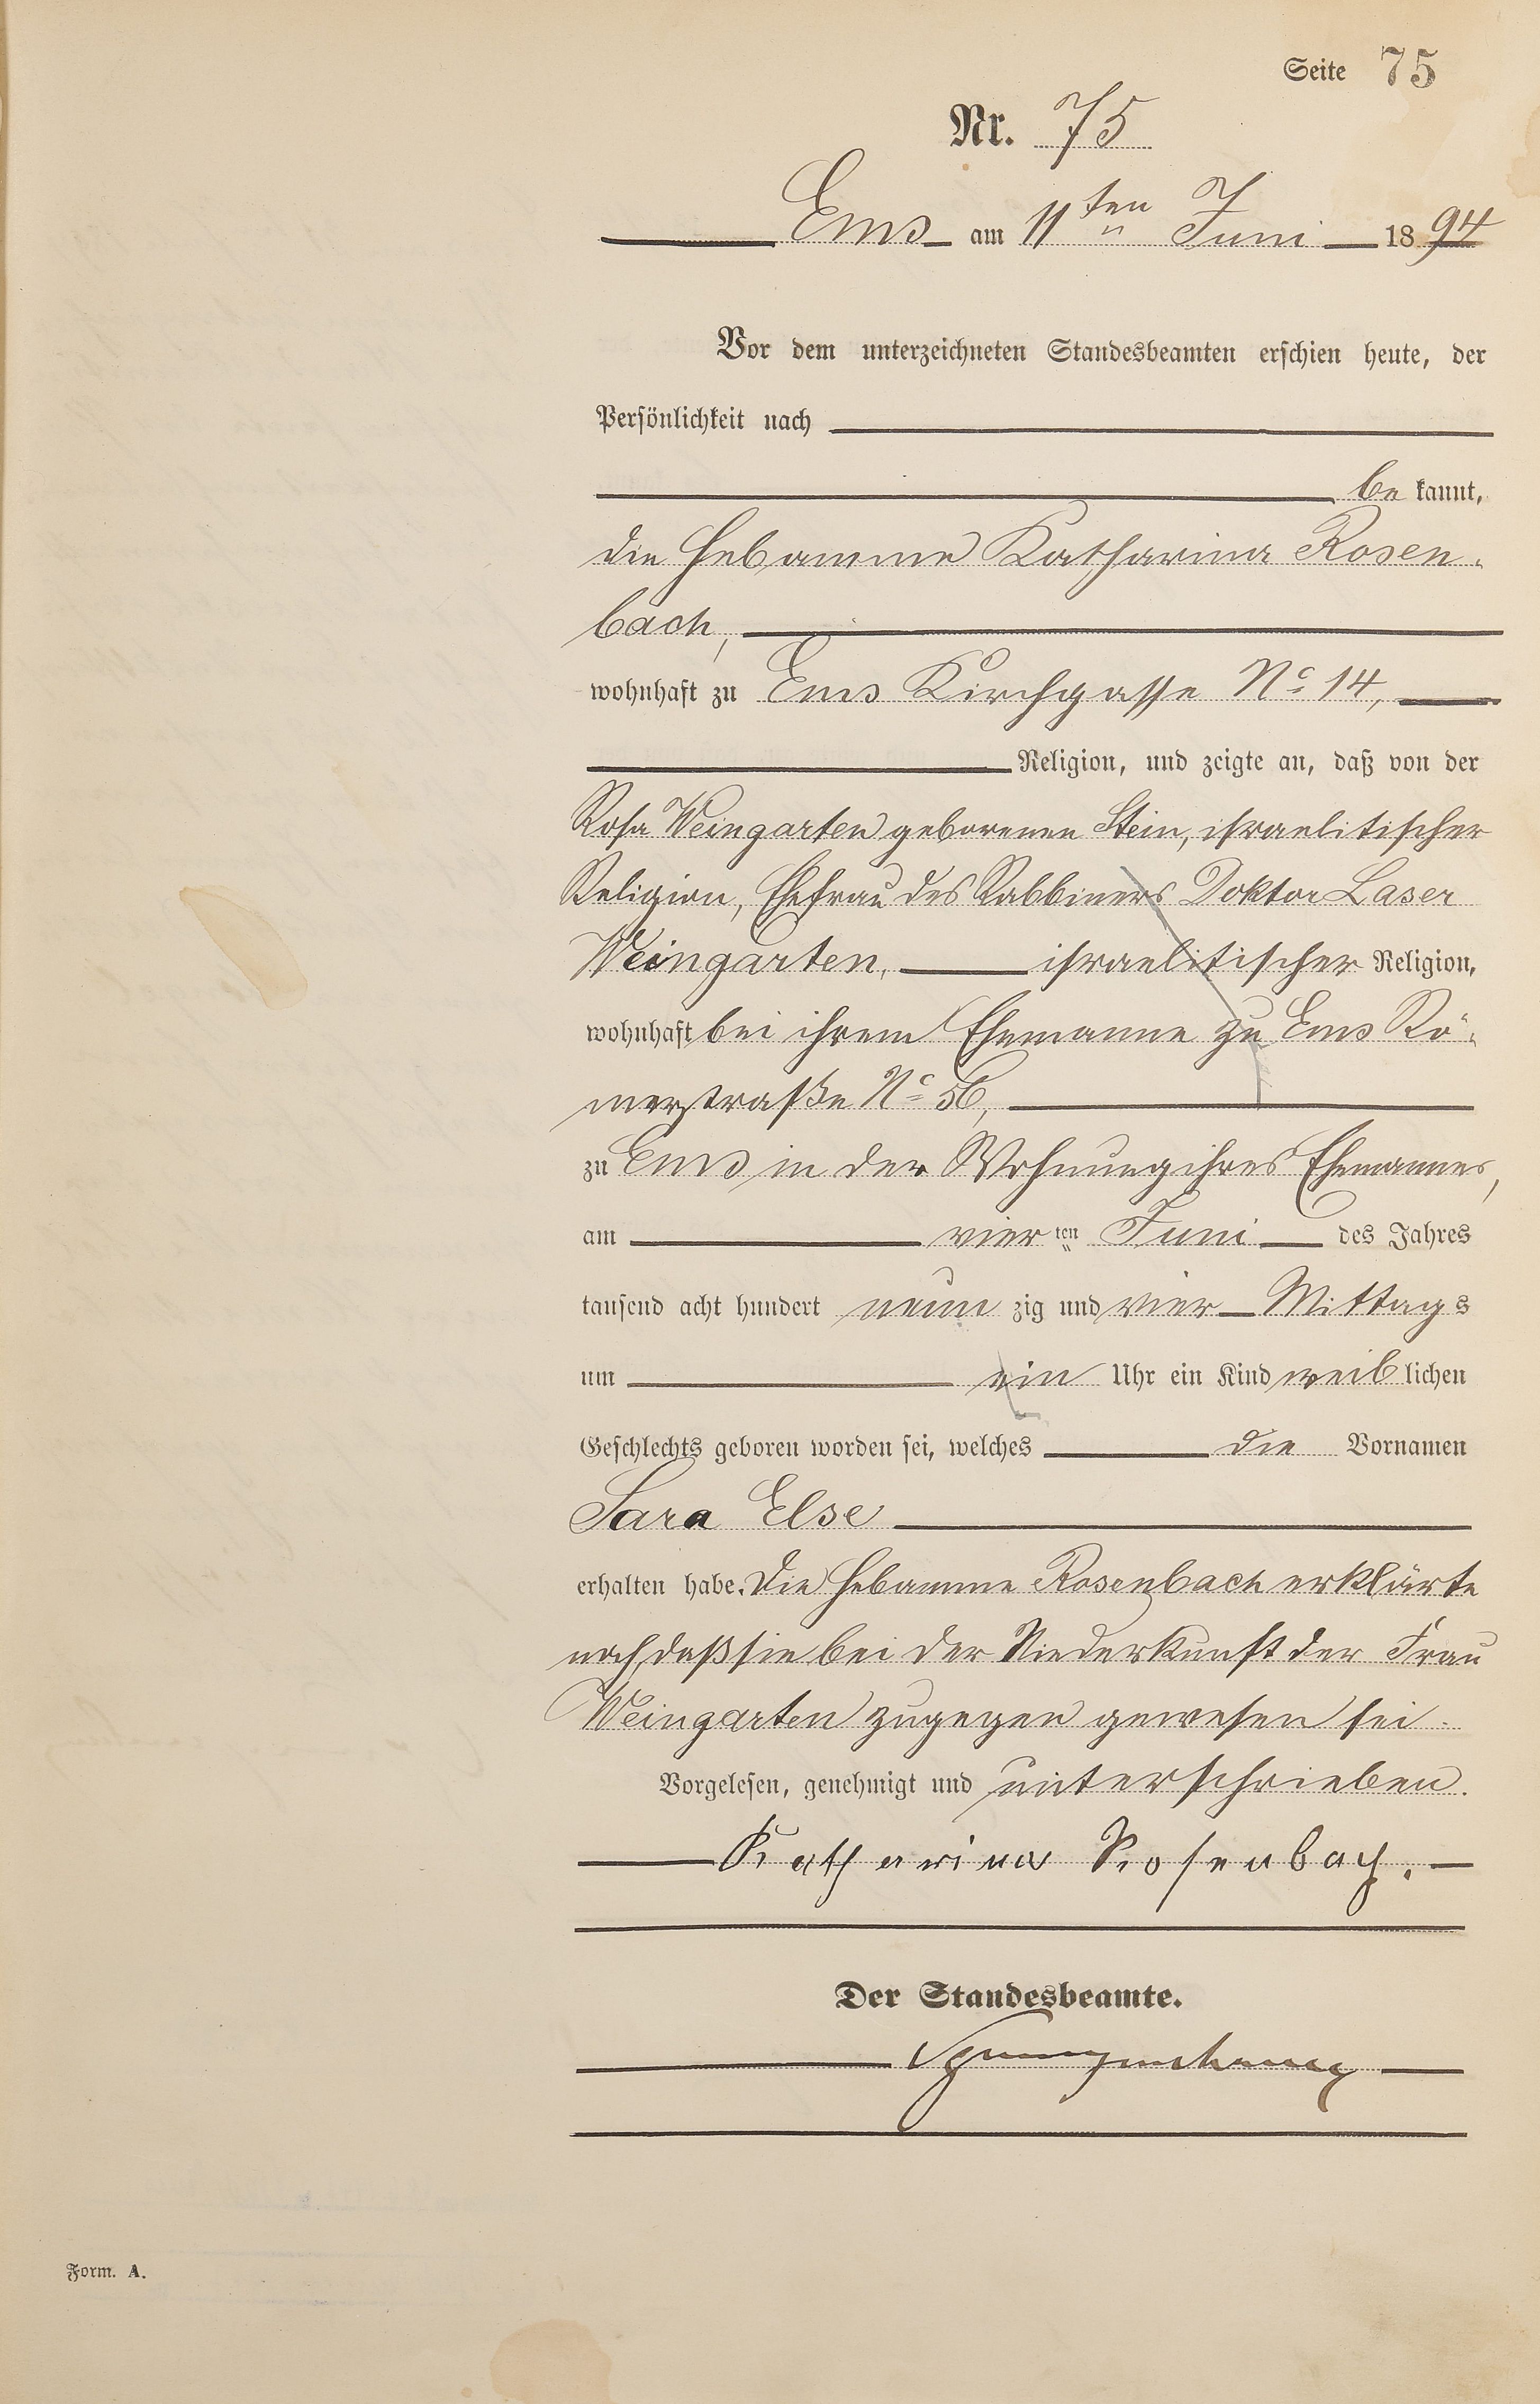 Seite 75
Nr. 75
Ems am 11ten Juni 1894
Vor dem unterzeichneten Standesbeamten erschien heute, der
Persönlichkeit nach
be kannt,
die Hebamme Katharina Rosen-
bach,
wohnhaft zu Ems Kirchgasse No 14,
Religion, und zeigte an, daß von der
Rosa Weingarten geborenen Stein, israelitischer
Religion, Ehefrau des Rabbiners Doktor Laser
Weingarten, israelitischer Religion,
wohnhaft bei ihrem Ehemanne zu Ems Rö-
merstraße No 56,
zu Ems in der Wohnung ihres Ehemannes,
am vier ten Juni des Jahres
tausend acht hundert neun zig und vier Mittags
um ein Uhr ein Kind weib lichen
Geschlechts geboren worden sei, welches die Vornamen
Sara Else
erhalten habe. Die Hebamme Rosenbach erklärte
noch, daß sie bei der Niederkunft der Frau
Weingarten zugegen gewesen sei.
Vorgelesen, genehmigt und unterschrieben.
Katharina Rosenbach.
Der Standesbeamte.
Form. A.